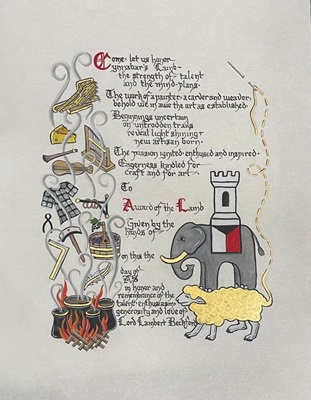 Come let us honor
Cynnabar's Lamb
the strength of talent
and the mind plans.
The work of a painter a carver and weaver
behold we in awe the art as established.
Beginnings uncertain
on untrodden trails
reveal light shining
new artisan born.
The passion ignited enthused and inspired.
Eagerness kindled for
craft and for art
To
Award of the Lamb
Given by the
hands of
on this the
day of
AS
in honor and
remembrance of the
talent enthusiasm
generosity and love of
Lord Lambert Beckford